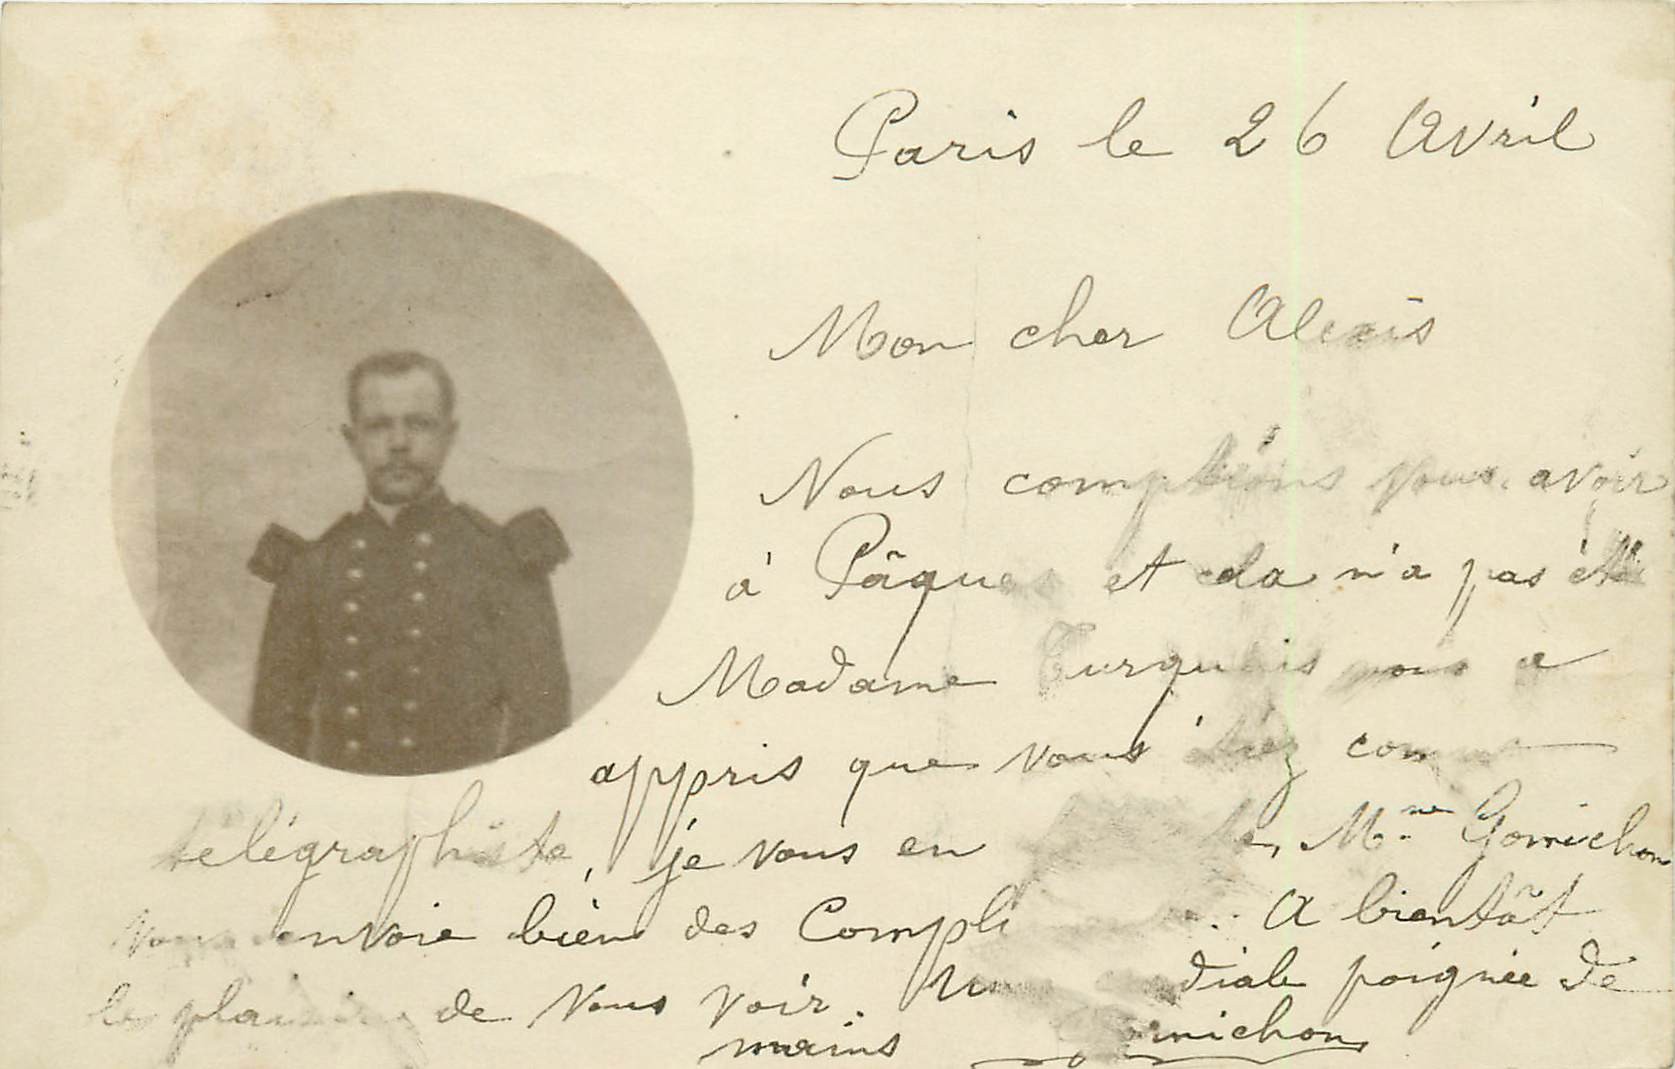 Paris le 26 Avril
Mon cher Alexis
Nous comptions vous avoir
à Pâques et cla n'a pas été
Madame Turquois nous a
appris que vous étiez comme
télégraphiste, je vous en Mme Gornichon
vous envoie bien des Compli A bientôt
le plaisir de Vous voir. Une cordiale poignée de
mains Gornichon